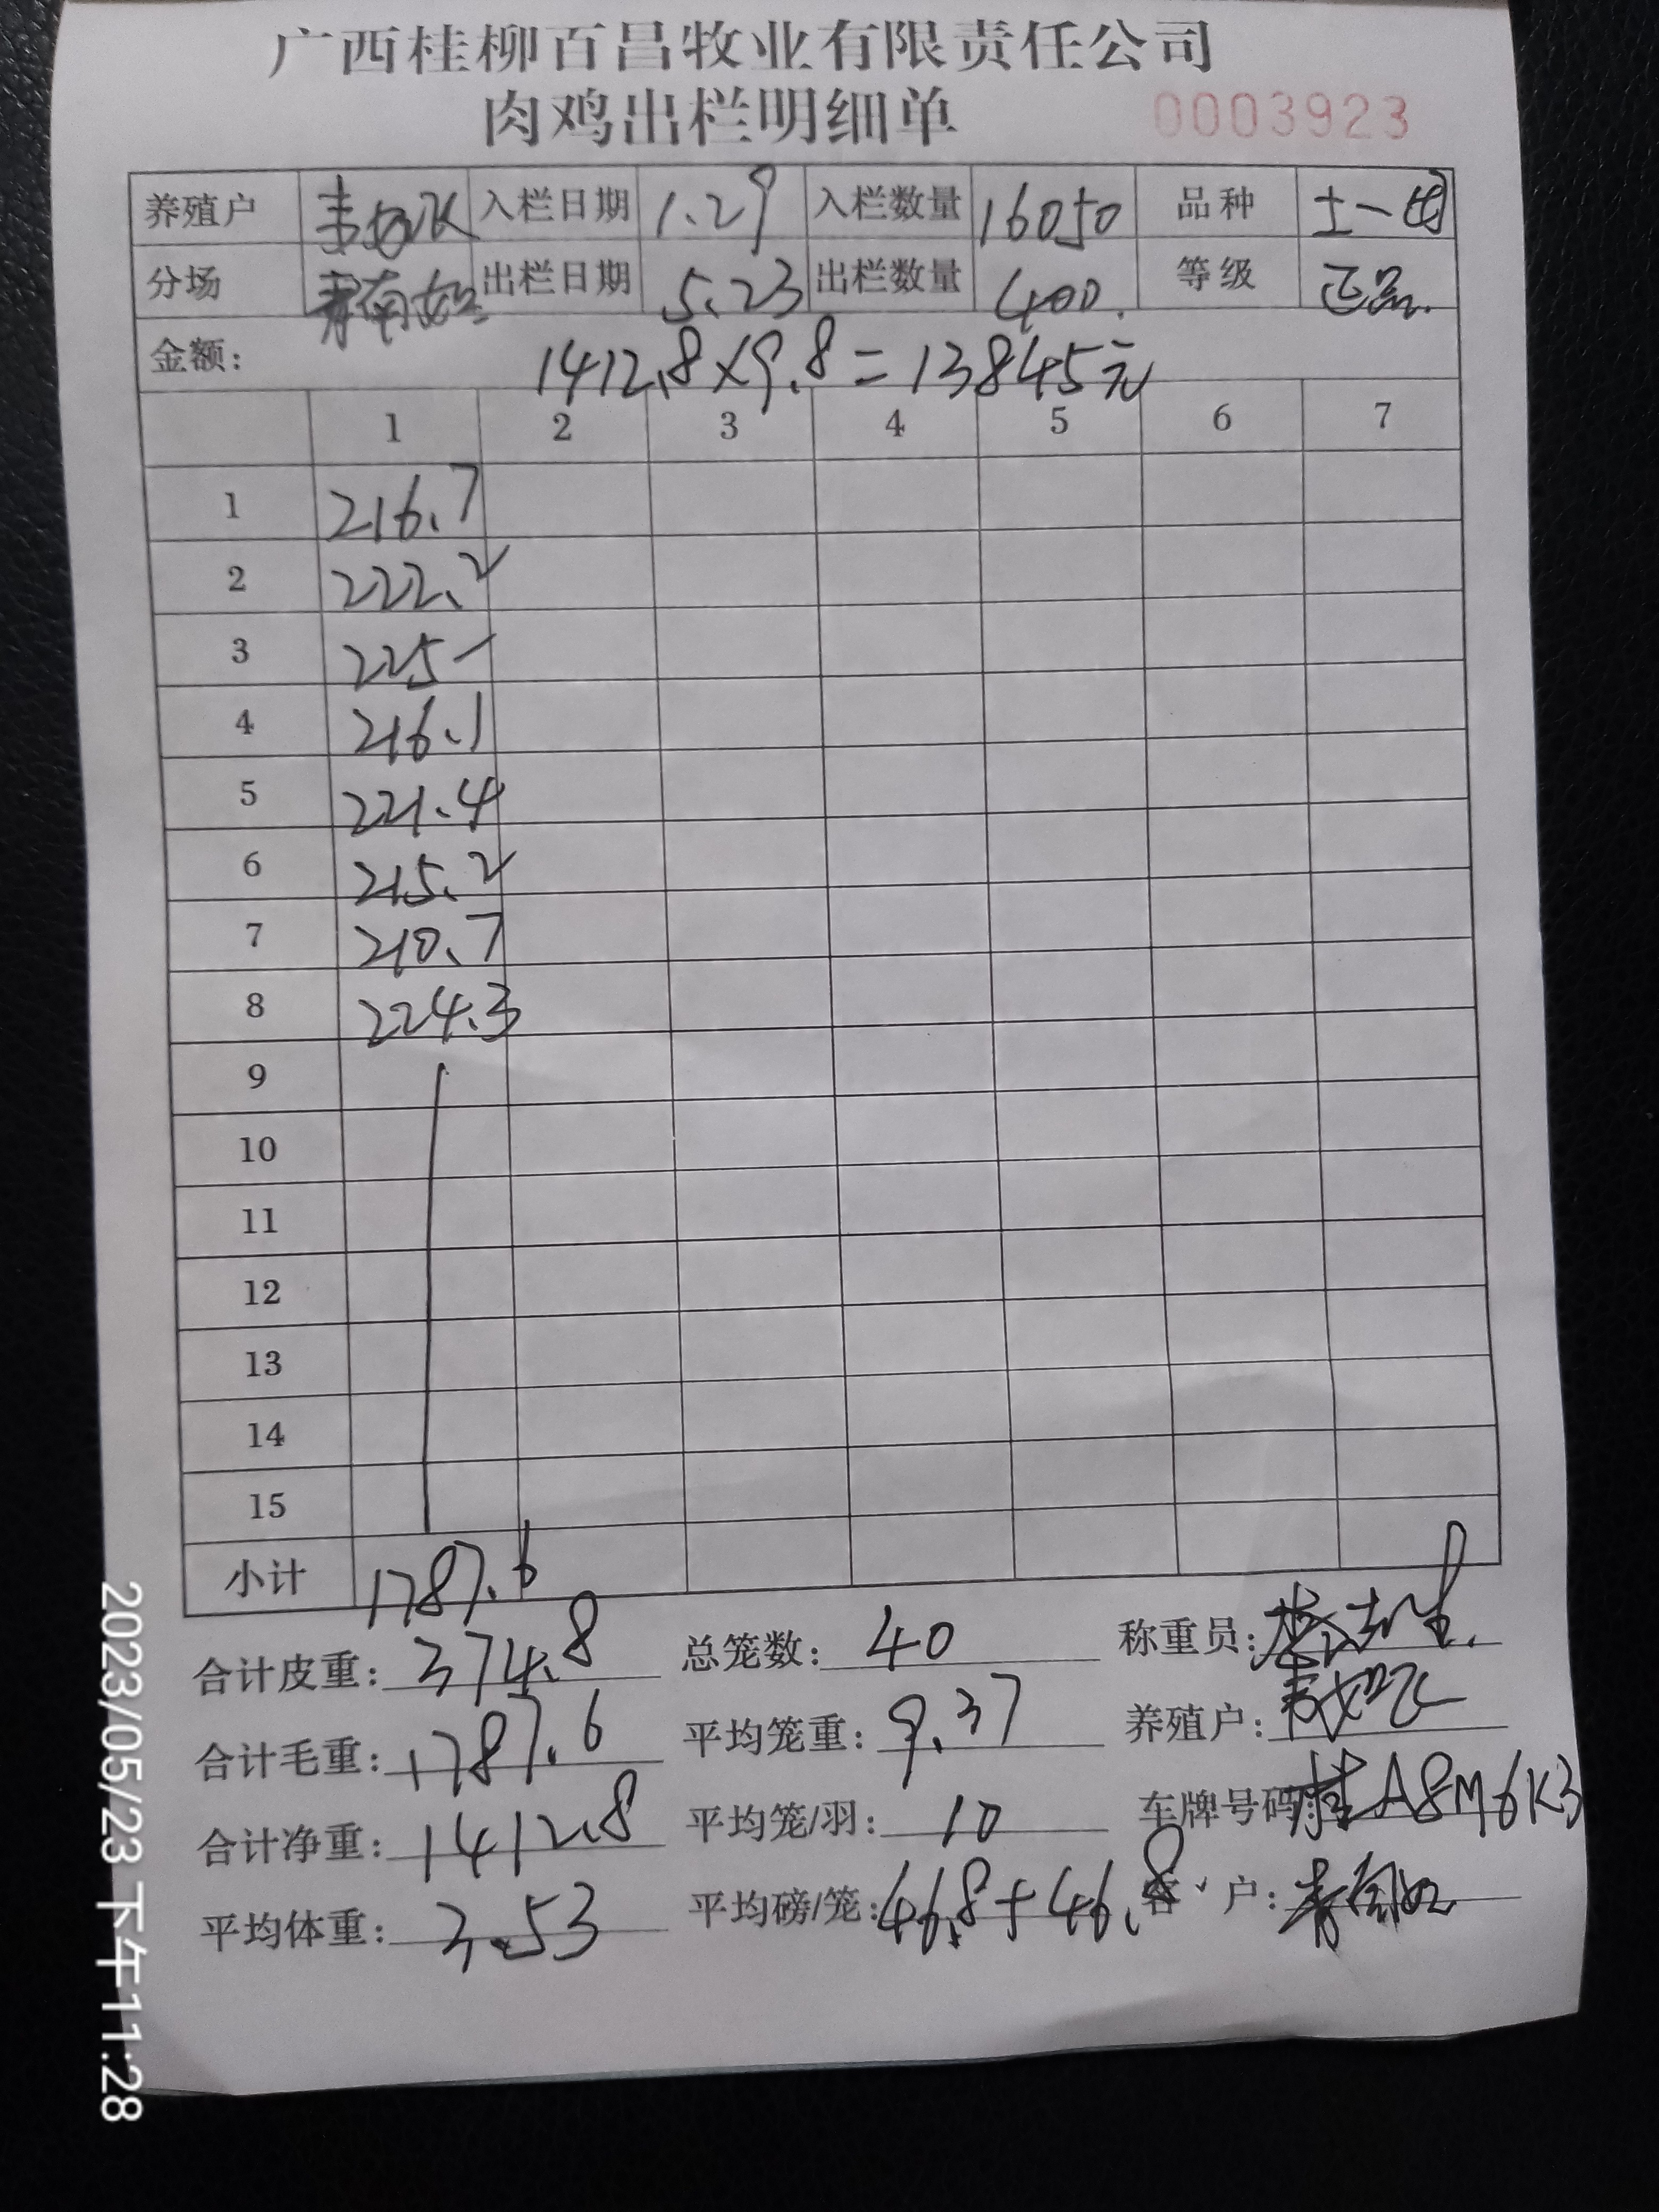 广西桂柳百昌牧业有限责任公司
肉鸡出栏明细单 0003923
养殖户 入栏日期 1.29 入栏数量 16050 品种 土一
分场 出栏日期 5.23 出栏数量 400. 等级 正品.
金额: 1412.8×9.8=13845元
1 2 3 4 5 6 7
1 216.7
2 222.2
3 225-
4 216.1
5 221.4
6 215.2
7 210.7
8 224.3
9
10
11
12
13
14
15
小计 1787.6
合计皮重: 374.8 总笼数: 40 称重员:
合计毛重: 1787.6 平均笼重: 9.37 养殖户:
合计净重: 1412.8 平均笼/羽: 10 车牌号码: 桂A8M6K3
平均体重: 3.53 平均磅/笼: 46.8+46.8 客户:
2023/05/23 下午11:28